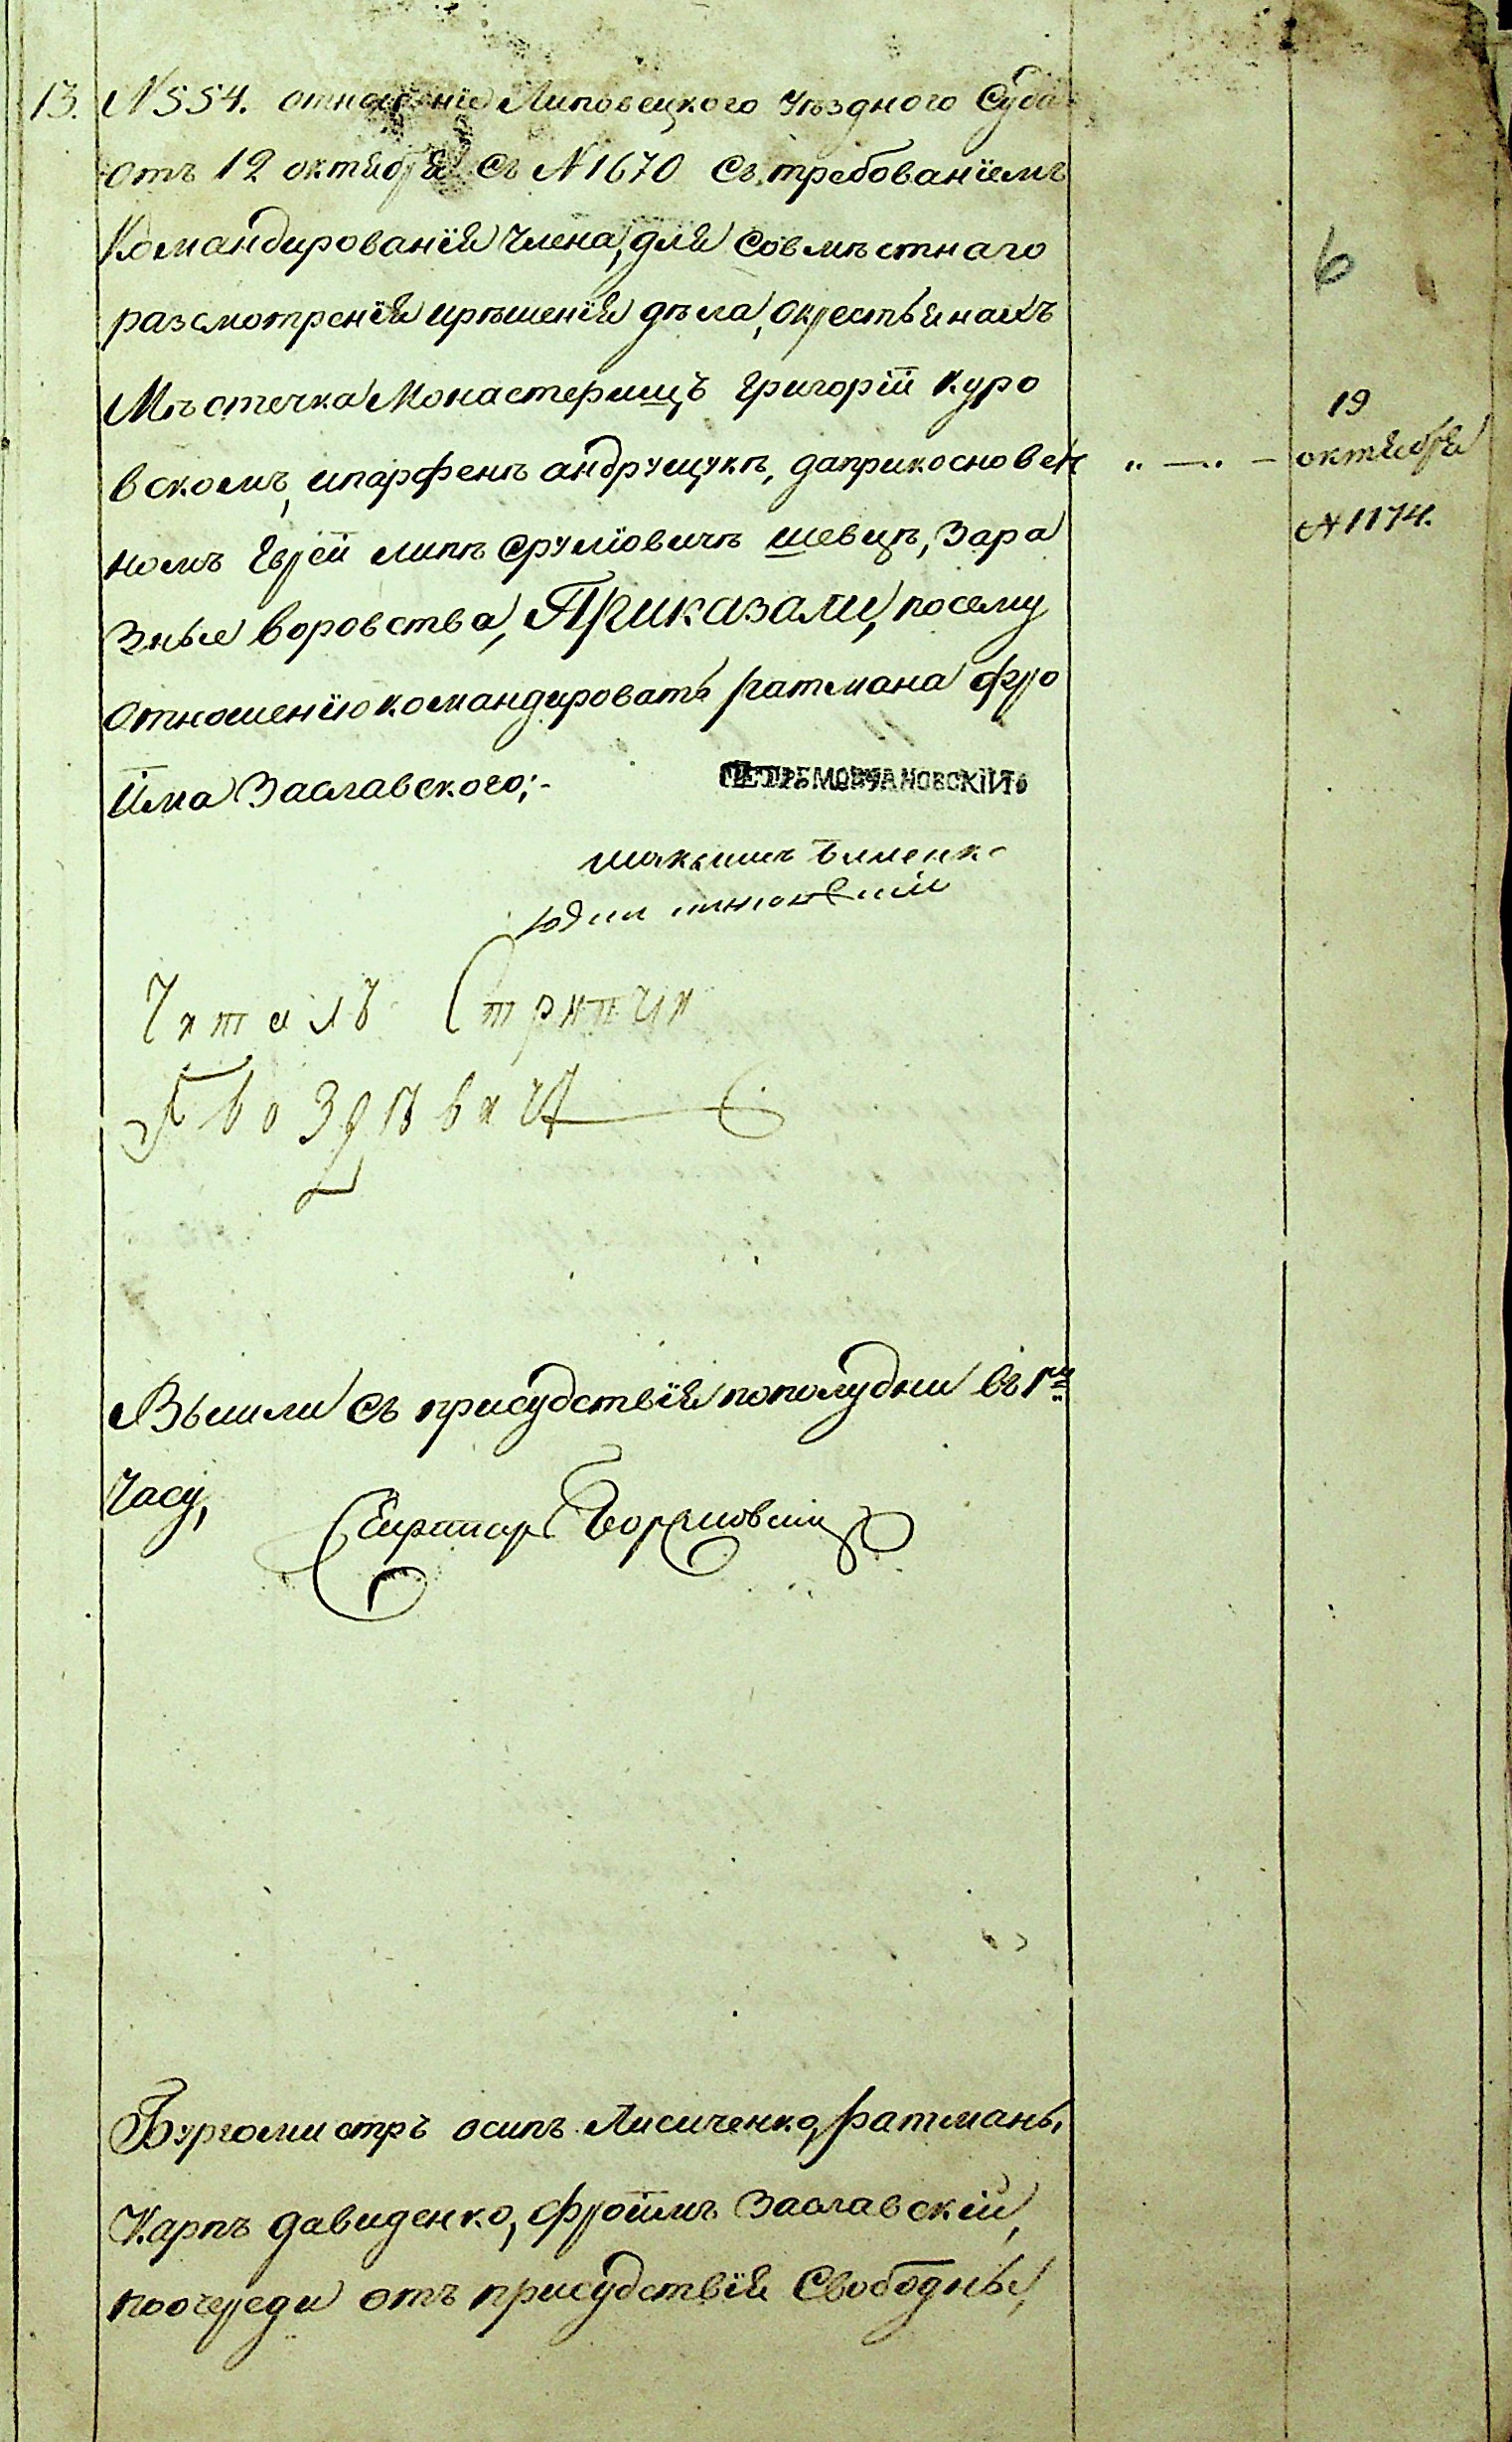 13. N 554. отношение Липовецкого Уѣзднаго Суда
отъ 12 октября съ N 1670 съ требованїемъ
Командированїя Члена, для совмѣстнаго
разсмотренїя ирѣшенїя дѣла, окрестьянахъ
Мѣстечка Монастерищъ Григорїй Куро
вскомъ, ипарфенѣ андрущукѣ, даприкосновен
номъ Еврей липѣ Сруліовичѣ шевцѣ, Зара
зные воровства, Приказали, посему
отношенїю командировать ратмана Фро
йма Заславского;-
6
19
октября
N 1174.
Читалъ Стряпчи
Гвоздѣвич
Вышли съ присудствїя пополудни въ 1мъ
часу,
Бургомистръ осипъ Лисиченко, ратманы,
Карпъ давиденко, Фроймъ Заславскій,
поочереди отъ присудствїя Свободны,